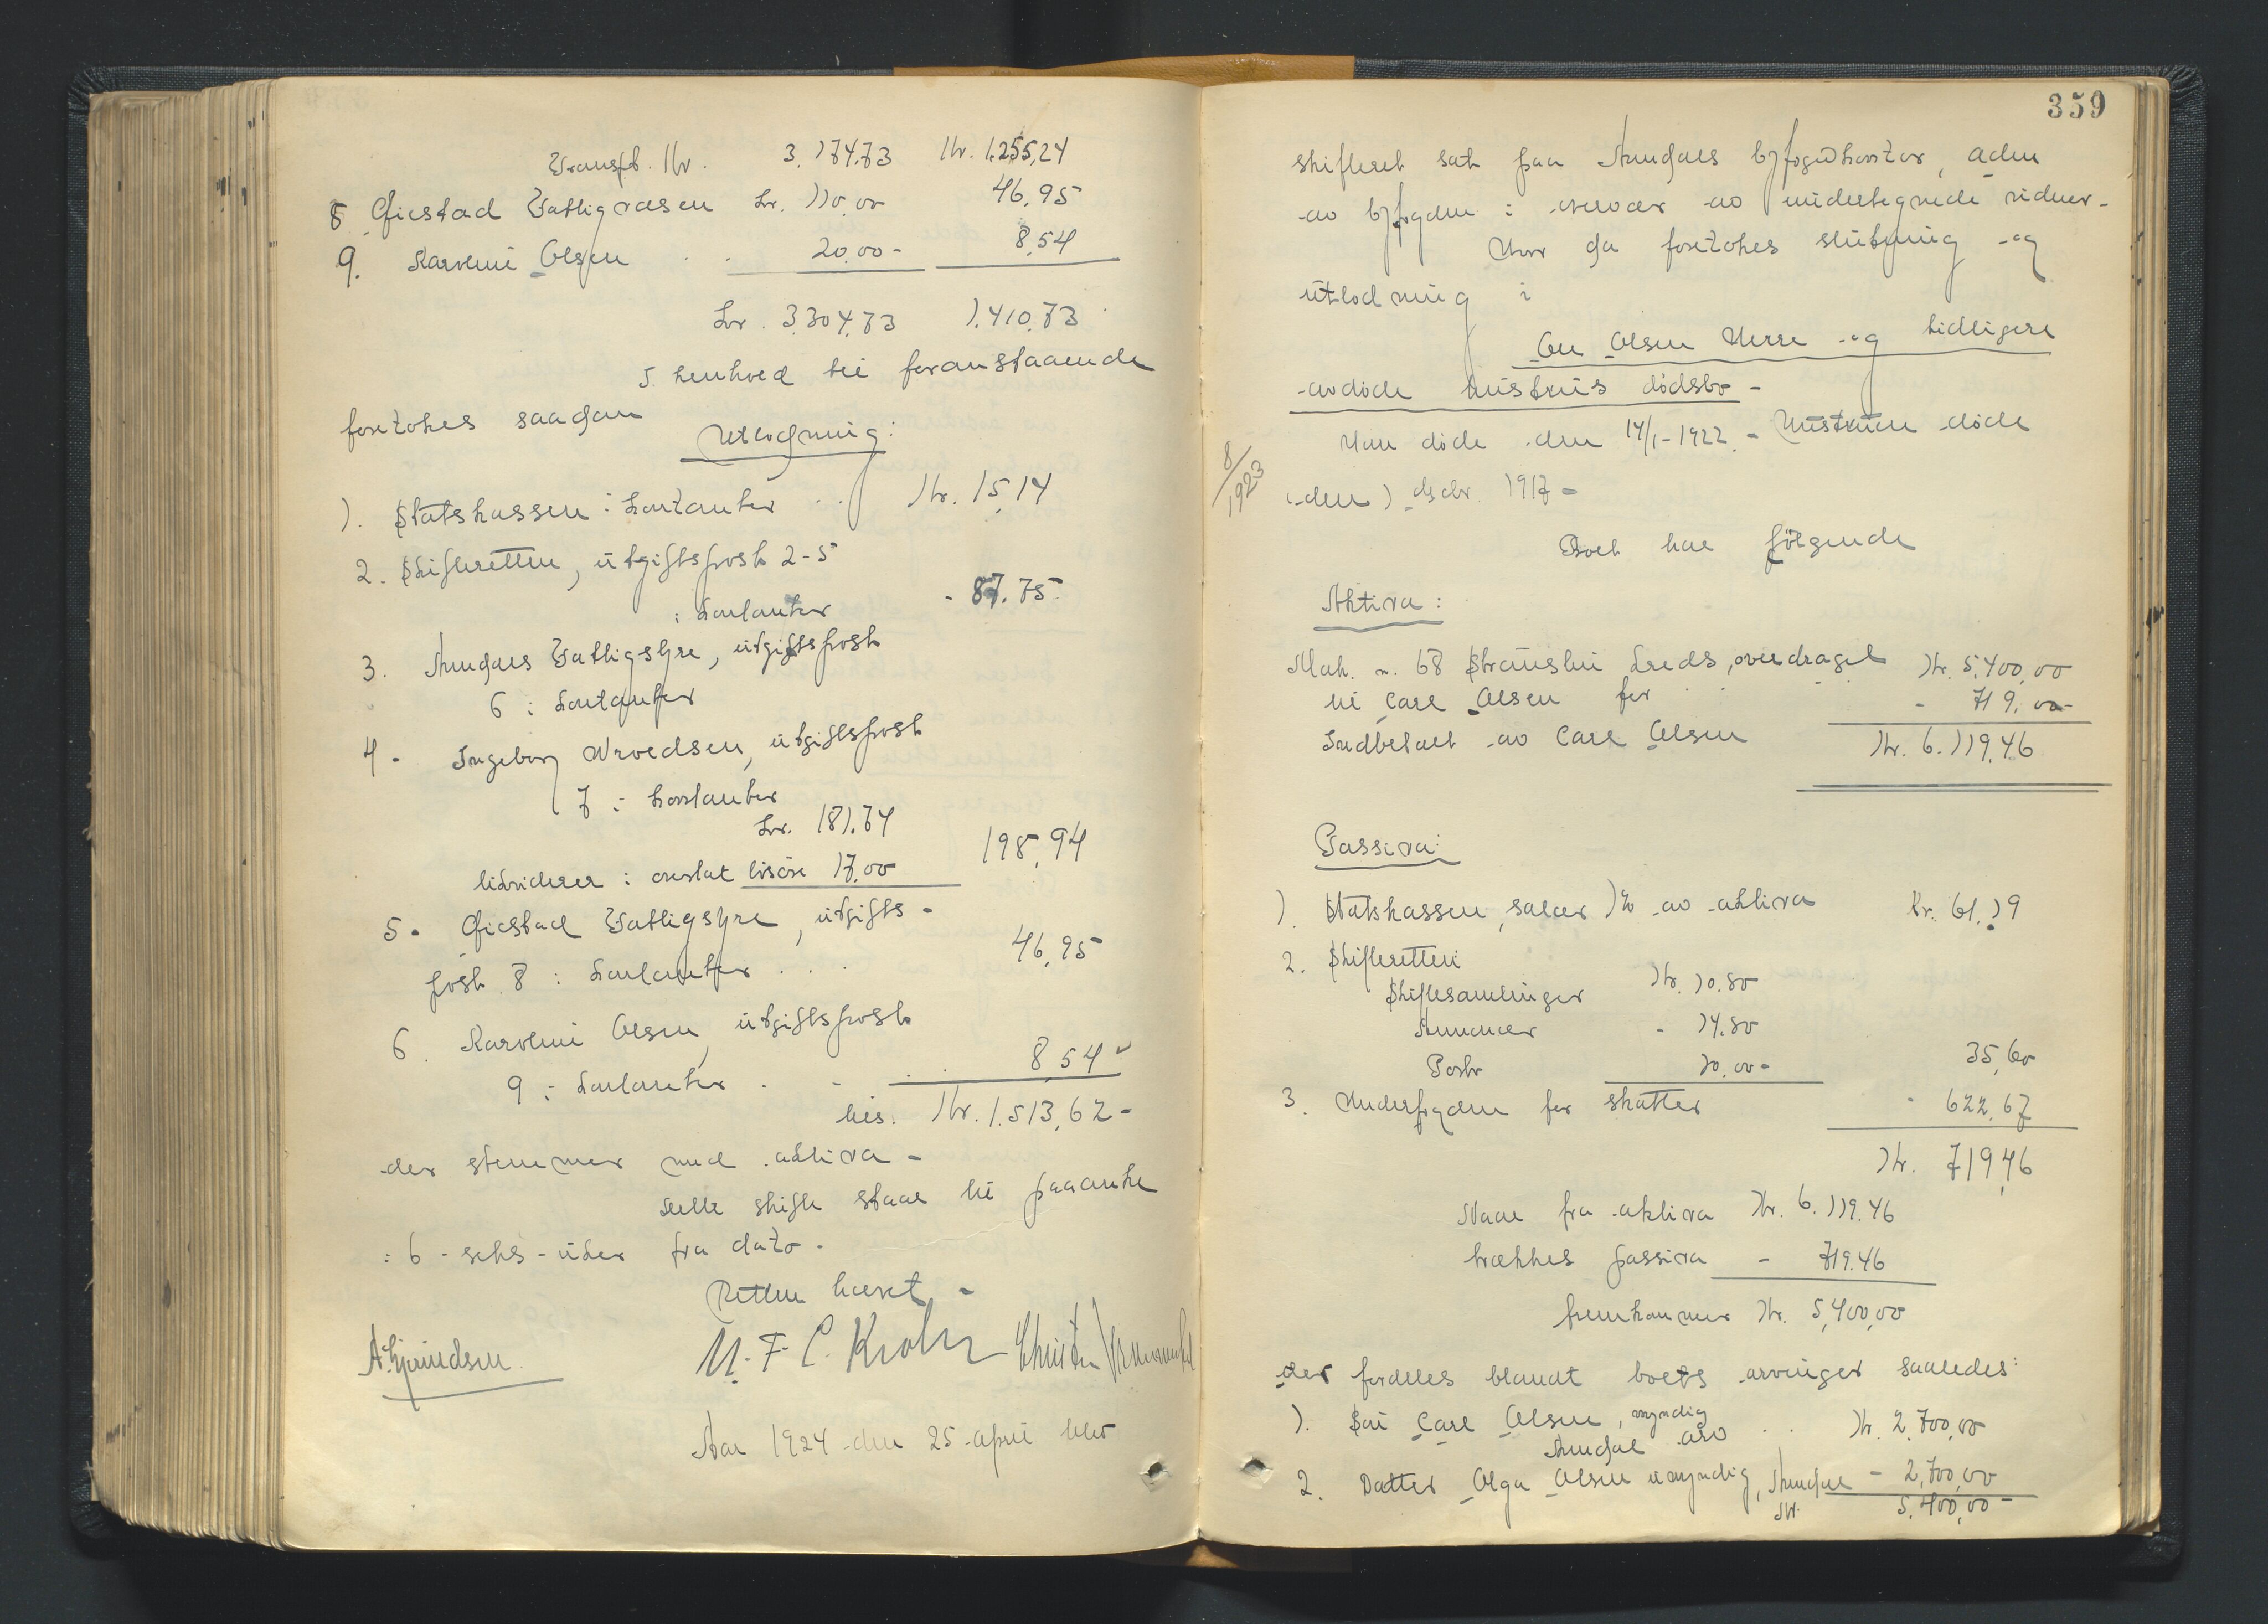 Transpt. Kr. 3.174.73 Kr. 1.255,24
8 Øiestad Fattigvæsen kr. 110.00 46.95
9. Karoline Olsen . . 20.00 - 8.54
kr. 3.304.73 1.410.73
I henhold til foranstaaende
foretokes saadan
Utlodning:
1. Statskassen i kontanter . . Kr. 15,14
2. Skifteretten, utgiftspost 2-5
i kontanter - 87.75
3. Arendals Fattigstyre, utgiftspost
6 i kontanter
4 - Ingeborg Arvedsen, utgiftspost
7 i kontanter
kr. 181.74
likviderer i avslat løsøre 17.00 198,94
5. Øiestad Fattigstyre, utgifts-
post 8 i kontanter . . . 46,95
6. Karoline Olsen, utgiftspost
9 i kontanter . - . . 8,54
tils. Kr. 1.513,62 -
der stemmer med aktiva -
Dette skifte staar til paaanke
i 6 - seks - uker fra dato -
Retten hævet -
N. F. C. Krohn
Aar 1924 den 25 april blev
359
skifteret sat paa Arendals byfogedkontor, adm
av byfogden i overvær av undertegnede vidner -
Hvor da foretokes slutning og
utlodning i
Ole Olsen Herre og tidligere
avdøde hustrus dødsbo -
Han døde den 14/1 - 1922. - Hustruen døde
8/1923
den 1 decbr. 1917 -
Boet har følgende
Aktiva:
Mat. n. 68 Strømsbu kreds, overdraget
til Carl Olsen for . . Kr. 5.400,00
Indbetalt av Carl Olsen - 719.00-
Kr. 6.119.46
Passiva:
1. Statskassen, salær 1% av aktiva Kr. 61.19
2. Skifteretten
Skiftesamlinger Kr. 10.80
Annoncer - 14.80
Porto 10.00 - 35,60
3. Underfogden for skatter - 622.67
Kr. 719,46
Naar fra aktiva Kr. 6.119.46
trækkes passiva - 719.46
fremkommer Kr. 5,400,00
der fordeles blandt boets arvinger saaledes:
1. Søn Carl Olsen, myndig
Arendal arv . . Kr. 2.700,00
2. Datter Olga Olsen umyndig, Arendal - 2,700,00
Kr. 5.400,00 -